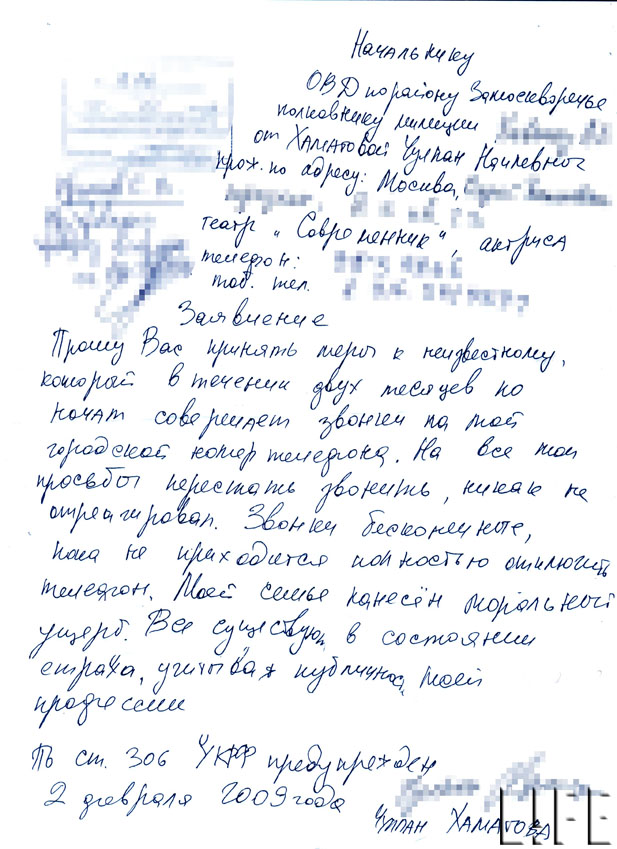 Начальнику
ОВД по району Замоскворечье
полковнику милиции
от Хаматовой Чулпан Наилевной
прож. по адресу: Москва,
театр „Современник", актриса
телефон:
моб. тел.
Заявление
Прошу Вас принять меры к неизвестному,
который в течении двух месяцев по
ночам совершает звонки на мой
городской номер телефона. На все мои
просьбы перестать звонить, никак не
отреагировал. Звонки бесконечные,
пока не приходится полностью отключить
телефон. Моей семье нанесён моральный
ущерб. Все существуем в состоянии
страха, учитывая публичность моей
профессии
По ст. 306 УКРФ предупрежден
2 февраля 2009 года
Чулпан Хаматова
LIFE